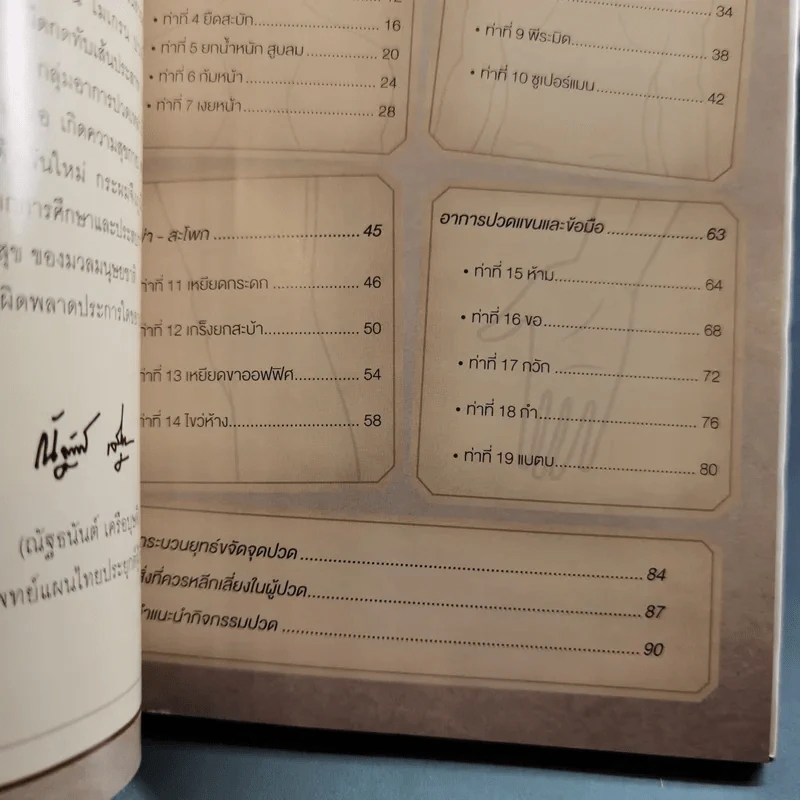 ไมเกรน
กดทับเส้นประสาท
กลุ่มอาการปวด
เกิดความสุข
วันใหม่ กระผม
การศึกษาและประสบ
สุข ของมวลมนุษยชาติ
ผิดพลาดประการใด
(ณัฐธนันต์ เครือบุษ
แพทย์แผนไทยประยุกต์
• ท่าที่ 4 ยืดสะบัก 16
• ท่าที่ 5 ยกน้ำหนัก สูบลม 20
• ท่าที่ 6 ก้มหน้า 24
• ท่าที่ 7 เงยหน้า 28
34
• ท่าที่ 9 พีระมิด 38
• ท่าที่ 10 ซูเปอร์แมน 42
- สะโพก 45
ท่าที่ 11 เหยียดกระดก 46
ท่าที่ 12 เกร็งยกสะบ้า 50
ท่าที่ 13 เหยียดขาออฟฟิศ 54
ท่าที่ 14 ไขว่ห้าง 58
อาการปวดแขนและข้อมือ 63
• ท่าที่ 15 ห้าม 64
• ท่าที่ 16 ขอ 68
• ท่าที่ 17 กวัก 72
• ท่าที่ 18 กำ 76
• ท่าที่ 19 แบตบ 80
กระบวนยุทธ์ขจัดจุดปวด 84
สิ่งที่ควรหลีกเลี่ยงในผู้ปวด 87
คำแนะนำกิจกรรมปวด 90